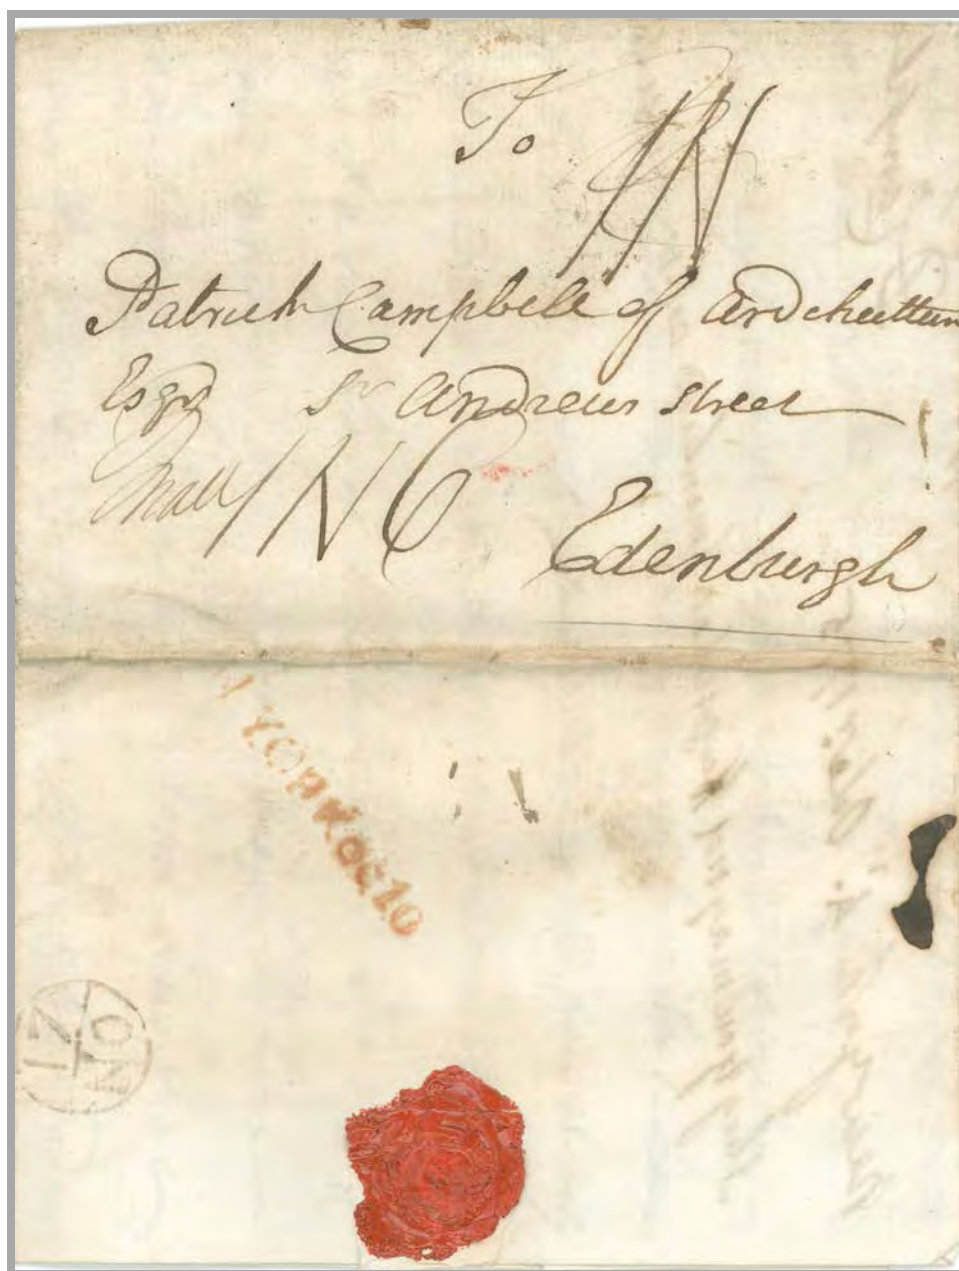 To IN
Patrick Campbell of Ardchattan
Esqr St Andrews Street
IN6
Edenburgh
YORK OC 10
17
NO